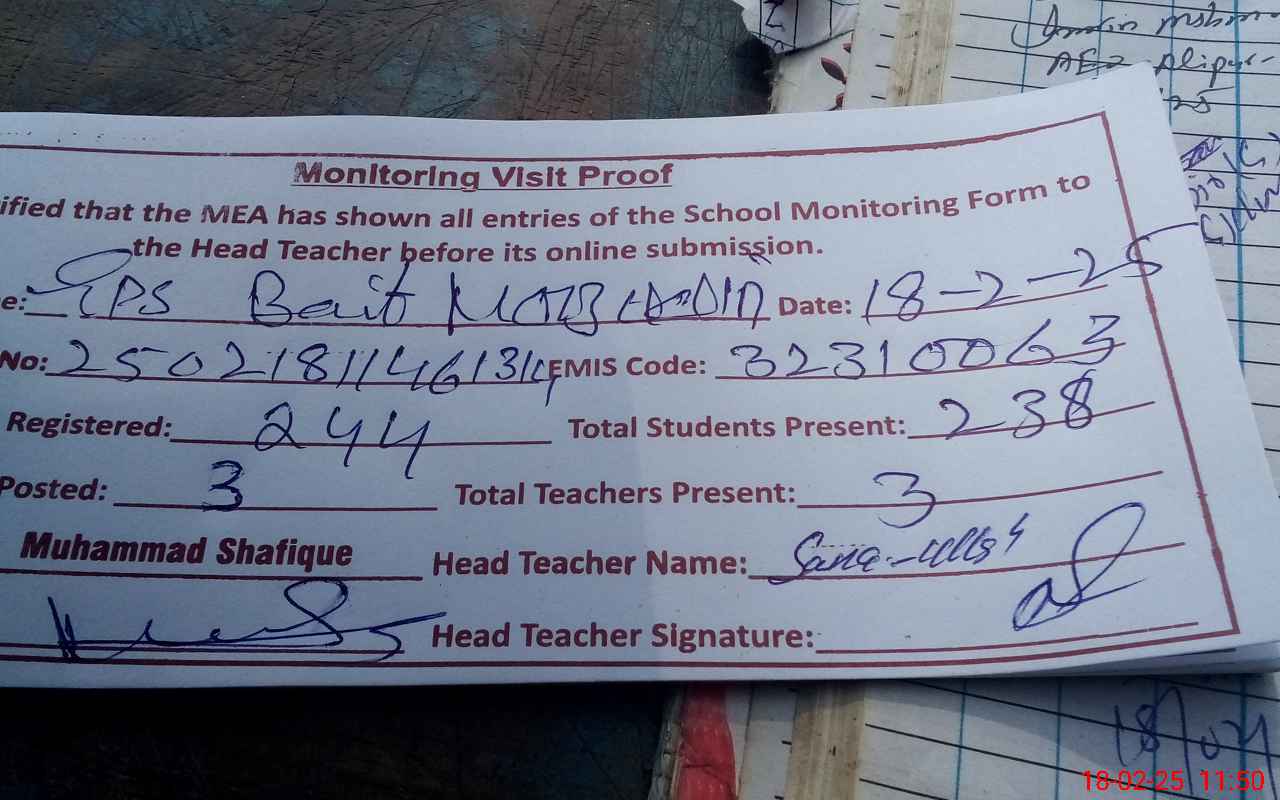 Monitoring Visit Proof
ified that the MEA has shown all entries of the School Monitoring Form to
the Head Teacher before its online submission.
e: GPS Bait Date: 18-2-25
No: 25021811461314 EMIS Code: 32310063
Registered: 244 Total Students Present: 238
Posted: 3 Total Teachers Present: 3
Muhammad Shafique Head Teacher Name: Sana-ullah
Head Teacher Signature:
18-02-25 11:50